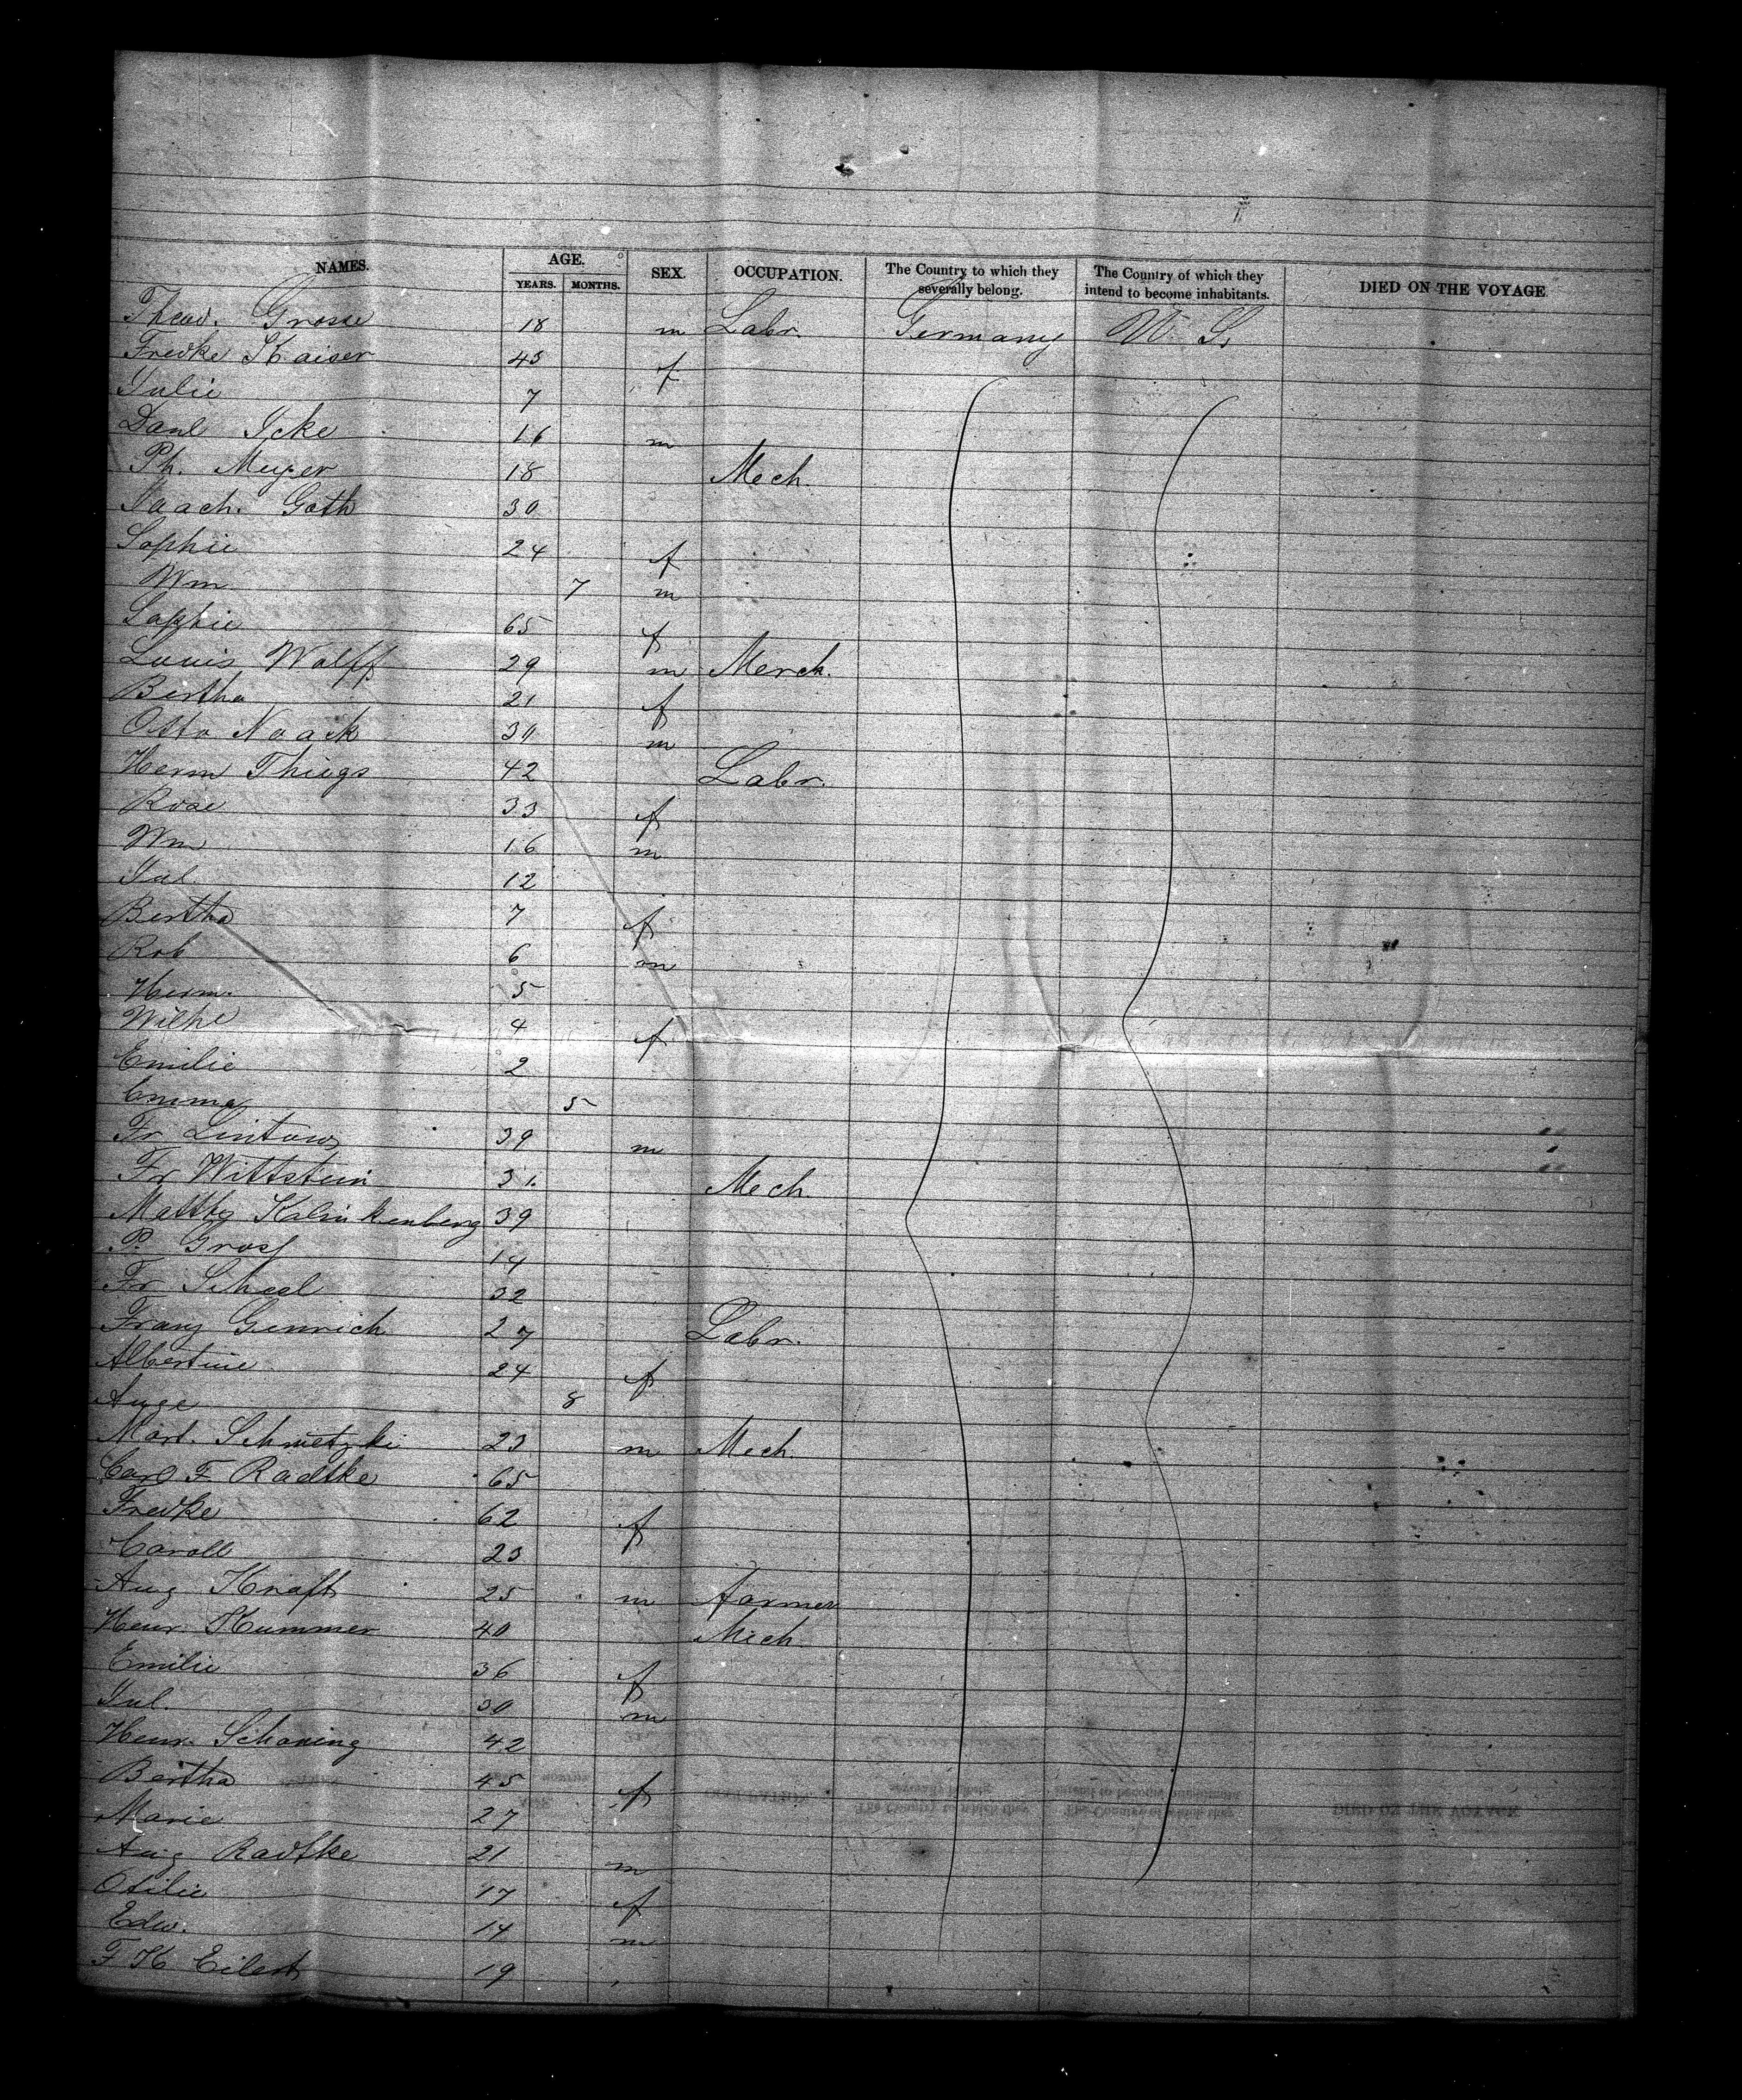 NAMES. AGE. SEX. OCCUPATION. The Country to which they severally belong. The Country of which they intend to become inhabitants. DIED ON THE VOYAGE
YEARS. MONTHS.
Theod. Grosse 18 m Labr. Germany U. S.
Fredke Kaiser 45 f
Julie 7
Danl Icke 16 m
Ph. Meyer 18 Mech
Joach. Goth 30
Sophie 24 f
Wm 7 m
Sophie 65 f
Louis Wolff 29 m Merch.
Bertha 21 f
Otto Noack 30 m
Herm Thiegs 42 Labr.
Rose 33 f
Wm 16 m
Jul. 12
Bertha 7 f
Rob 6 m
Herm. 5
Wilhe 4 f
Emilie 2
Emma 5
Fr Lintow 39 m
Fr Wittstein 31. Mech
39
P. Gross 14
Fr Scheel 32
Franz Genrich 27 Labr.
Albertine 24 f
Auge 8
Mart. Schmetzki 23 m Mech.
Carl F Radtke 65
Fredke 62 f
Caroll 23
Aug Kraft 25 m Farmer
Henr. Kummer 40 Mech
Emilie 36 f
Jul. 30 m
Henr. Schoning 42
Bertha 45 f
Marie 27
Aug Radtke 21 m
Otilie 17 f
Edw. 14 m
F K Eilert 19